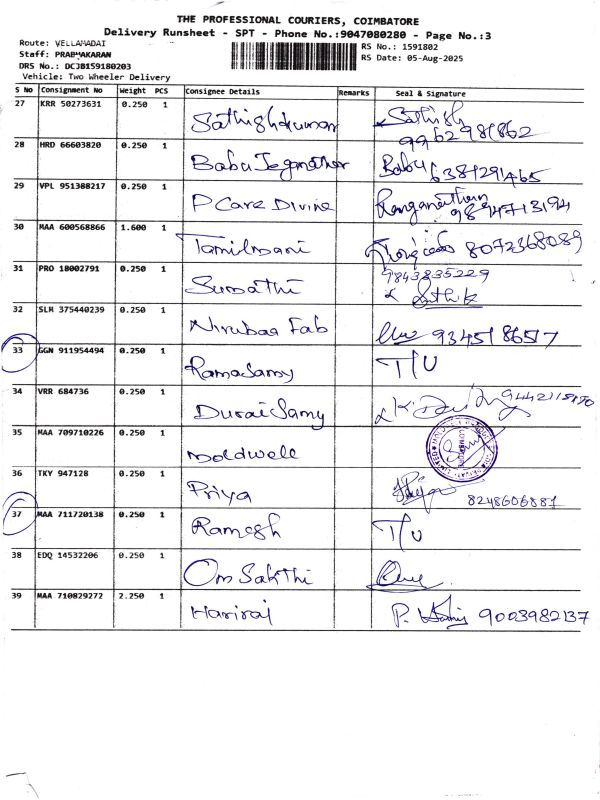 THE PROFESSIONAL COURIERS, COIMBATORE
Delivery Runsheet - SPT - Phone No.:9047080280 - Page No.:3
Route: VELLAMADAI RS No.: 1591802
Staff: PRABHAKARAN RS Date: 05-Aug-2025
DRS No.: DCJB159180203
Vehicle: Two Wheeler Delivery
S No Consignment No Weight PCS Consignee Details Remarks Seal & Signature
27 KRR 50273631 0.250 1 Sathishkumar Sathish
9962981862
28 HRD 66603820 0.250 1 Babu Jeganathan Babu 6381291465
29 VPL 951388217 0.250 1 P Care Divine Ranganathan
9894713194
30 MAA 600568866 1.600 1 Tamilmani 8072368089
31 PRO 18002791 0.250 1 Sumathi 9843835229
32 SLM 375440239 0.250 1 Nirubaa Fab 934518657
33 GGN 911954494 0.250 1 Ramasamy T/U
34 VRR 684736 0.250 1 Duraisamy
35 MAA 709710226 0.250 1 Moldwell
36 TKY 947128 0.250 1 Priya
8248606881
37 MAA 711720138 0.250 1 Ramesh T/U
38 EDQ 14532206 0.250 1 Om Sakthi
39 MAA 710829272 2.250 1 Hariraj P. 9003982137